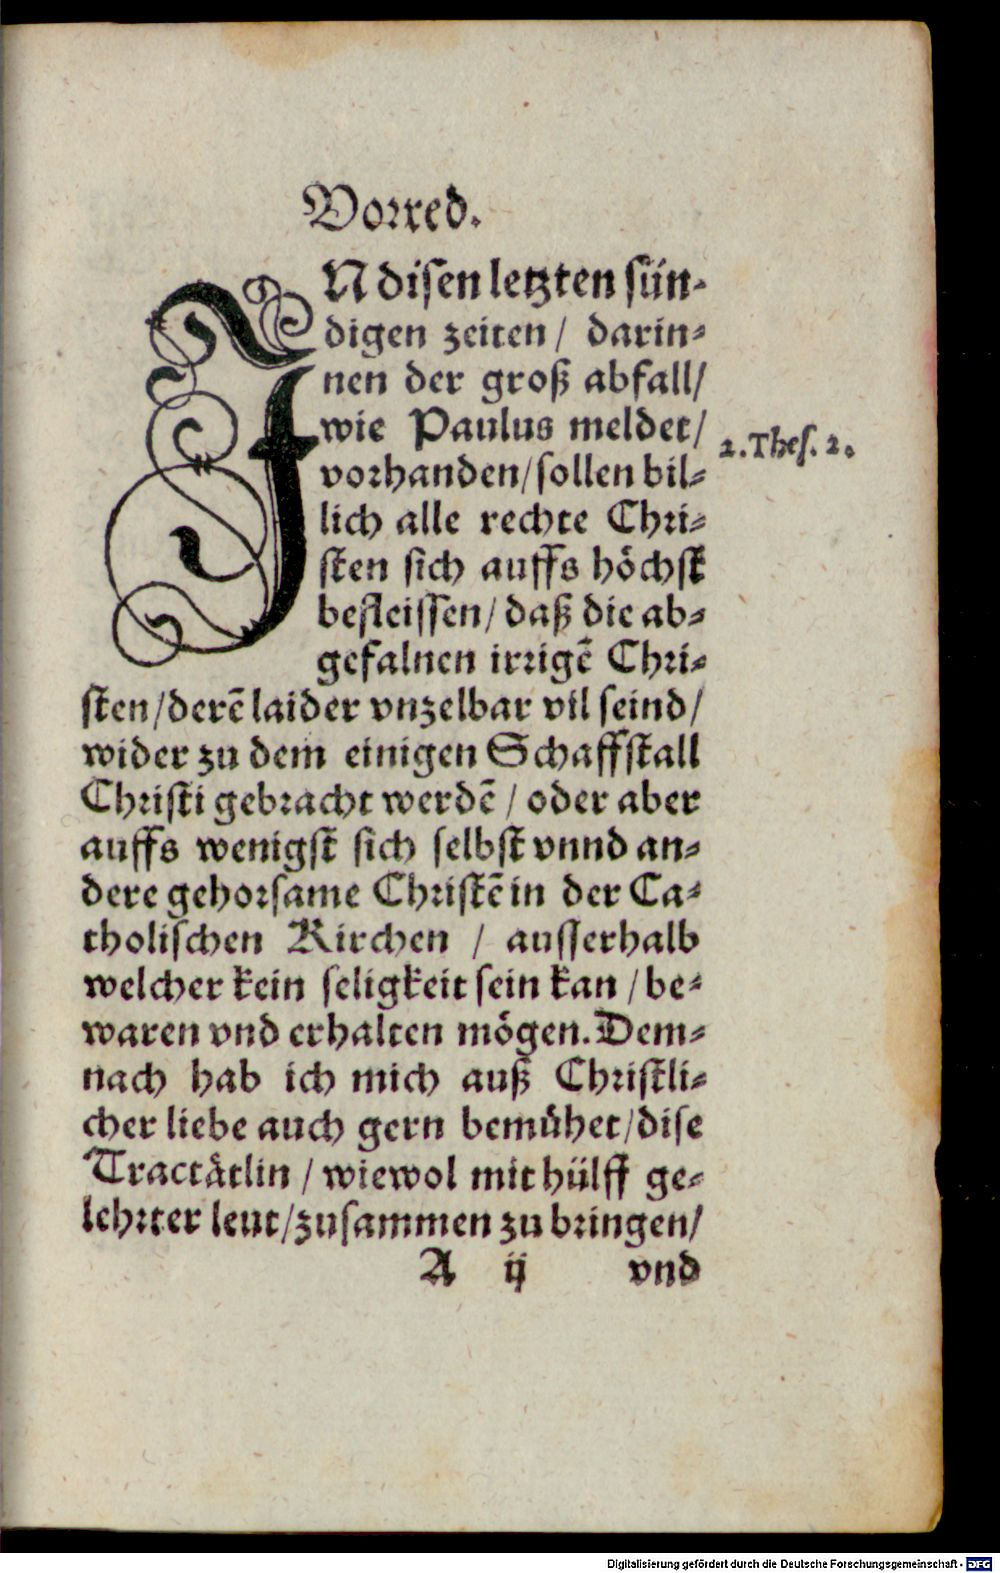 Vorred.
IN disen letzten sün-
digen zeiten / darin-
nen der groß abfall/
wie Paulus meldet/
2. Thes. 2.
vorhanden/sollen bil-
lich alle rechte Chri-
sten sich auffs höchst
befleissen/daß die ab-
gefalnen irrigẽ Chri-
sten/derẽ laider vnzelbar vil seind/
wider zu dem einigen Schaffstall
Christi gebracht werdẽ / oder aber
auffs wenigst sich selbst vnnd an-
dere gehorsame Christẽ in der Ca-
tholischen Kirchen / ausserhalb
welcher kein seligkeit sein kan / be-
waren vnd erhalten mögen. Dem-
nach hab ich mich auß Christli-
cher liebe auch gern bemühet/dise
Tractätlin / wiewol mit hülff ge-
lehrter leut/zusammen zu bringen/
A ij vnd
Digitalisierung gefördert durch die Deutsche Forschungsgemeinschaft - DFG